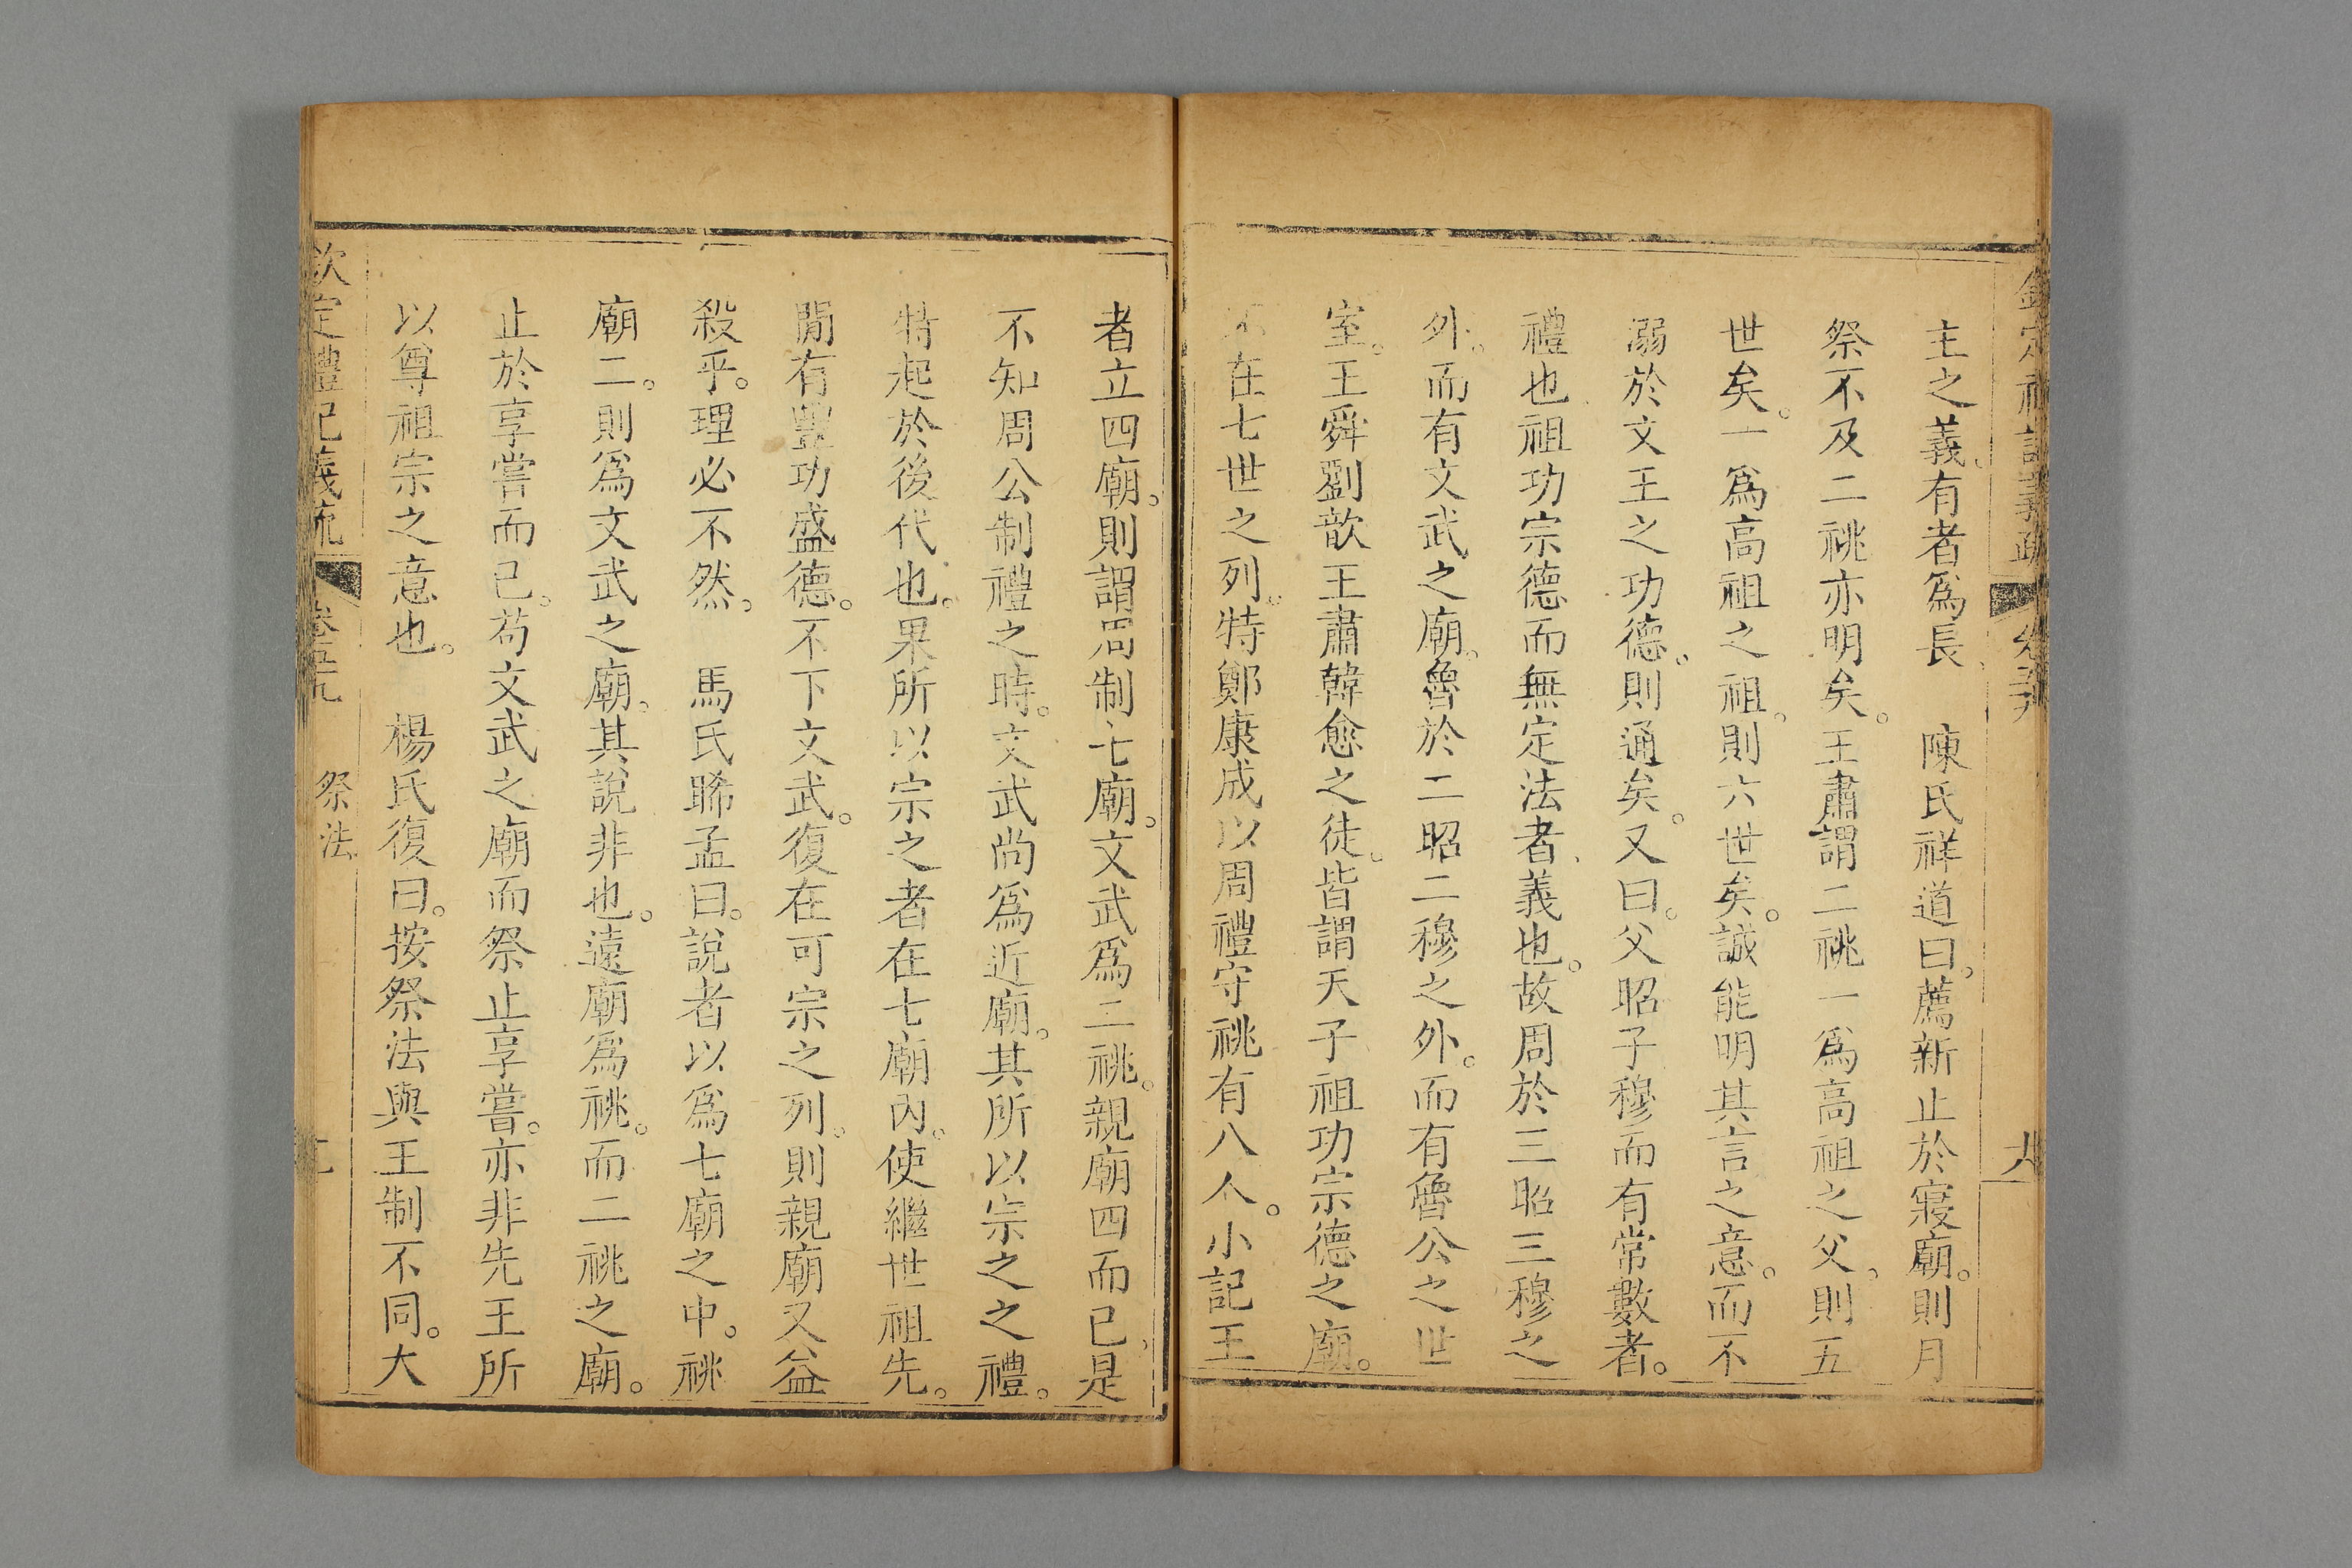 主之義、有者爲長、　陳氏祥道曰。薦新止於寢廟。則月
祭不及二祧亦明矣。王肅謂二祧一爲高祖之父。則五
世矣。一爲高祖之祖。則六世矣。誠能明其言之意。而不
溺於文王之功德。則通矣。又曰。父昭子穆而有常數者。
禮也祖功宗德而無定法者、義也。故周於三昭三穆之
外。而有文武之廟。魯於二昭二穆之外。而有魯公之世
室。王舜劉歆王肅韓愈之徒。皆謂天子祖功宗德之廟。
不在七世之列。特鄭康成以周禮守祧有八人。小記王
者立四廟。則謂周制七廟。文武爲二祧。親廟四而已、是
不知周公制禮之時。文武尚爲近廟。其所以宗之之禮。
特起於後代也。果所以宗之者在七廟內。使繼世祖先。
閒有豐功盛德。不下文武。復在可宗之列。則親廟又益
殺乎。理必不然。　馬氏睎孟曰。說者以爲七廟之中。祧
廟二。則爲文武之廟。其說非也。遠廟爲祧。而二祧之廟。
止於享嘗而已。苟文武之廟而祭止享嘗。亦非先王所
以尊祖宗之意也。　楊氏復曰。按祭法與王制不同。大
欽定禮記義疏　卷五十九　祭法